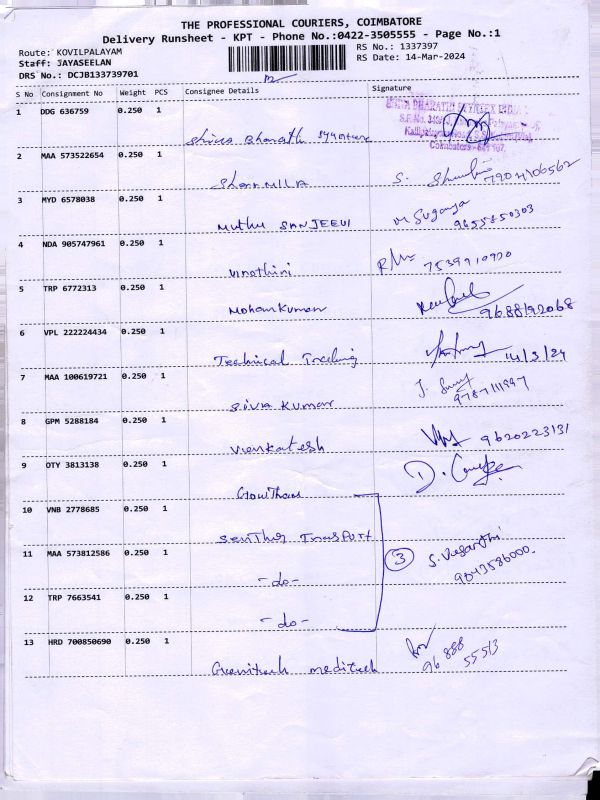 THE PROFESSIONAL COURIERS, COIMBATORE
Delivery Runsheet - KPT - Phone No.:0422-3505555 - Page No.:1
Route: KOVILPALAYAM RS No.: 1337397
Staff: JAYASEELAN RS Date: 14-Mar-2024
DRS No.: DCJB133739701
S No Consignment No Weight PCS Consignee Details Signature
1 DDG 636759 0.250 1
Coimbatore - 641 107.
Shiva Bharath
2 MAA 573522654 0.250 1
Sharmila S.
3 MYD 6578038 0.250 1 M Suganya
Muthu SANJEEVI 9655850303
4 NDA 905747961 0.250 1
Vinothini 7539910920
5 TRP 6772313 0.250 1
Mohankumar 9688192068
6 VPL 222224434 0.250 1
Technical Trading 14/3/24
7 MAA 100619721 0.250 1
Siva Kumar 9787111997
8 GPM 5288184 0.250 1
Venkatesh 9620223131
9 OTY 3813138 0.250 1
Gowtham
10 VNB 2778685 0.250 1
11 MAA 573812586 0.250 1 3
-do- 9043586000.
12 TRP 7663541 0.250 1
-do-
13 HRD 700850690 0.250 1
meditech 96 888 55513